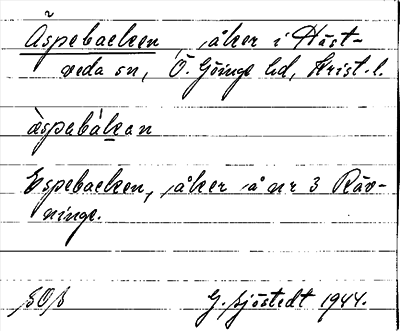 Äspebacken, åker i Häst-
veda sn, Ö. Göinge hd, Krist. l.
äspebákan
Espebacken, åker å nr 3 Räv-
ninge.
SOS G. Sjöstedt 1944.